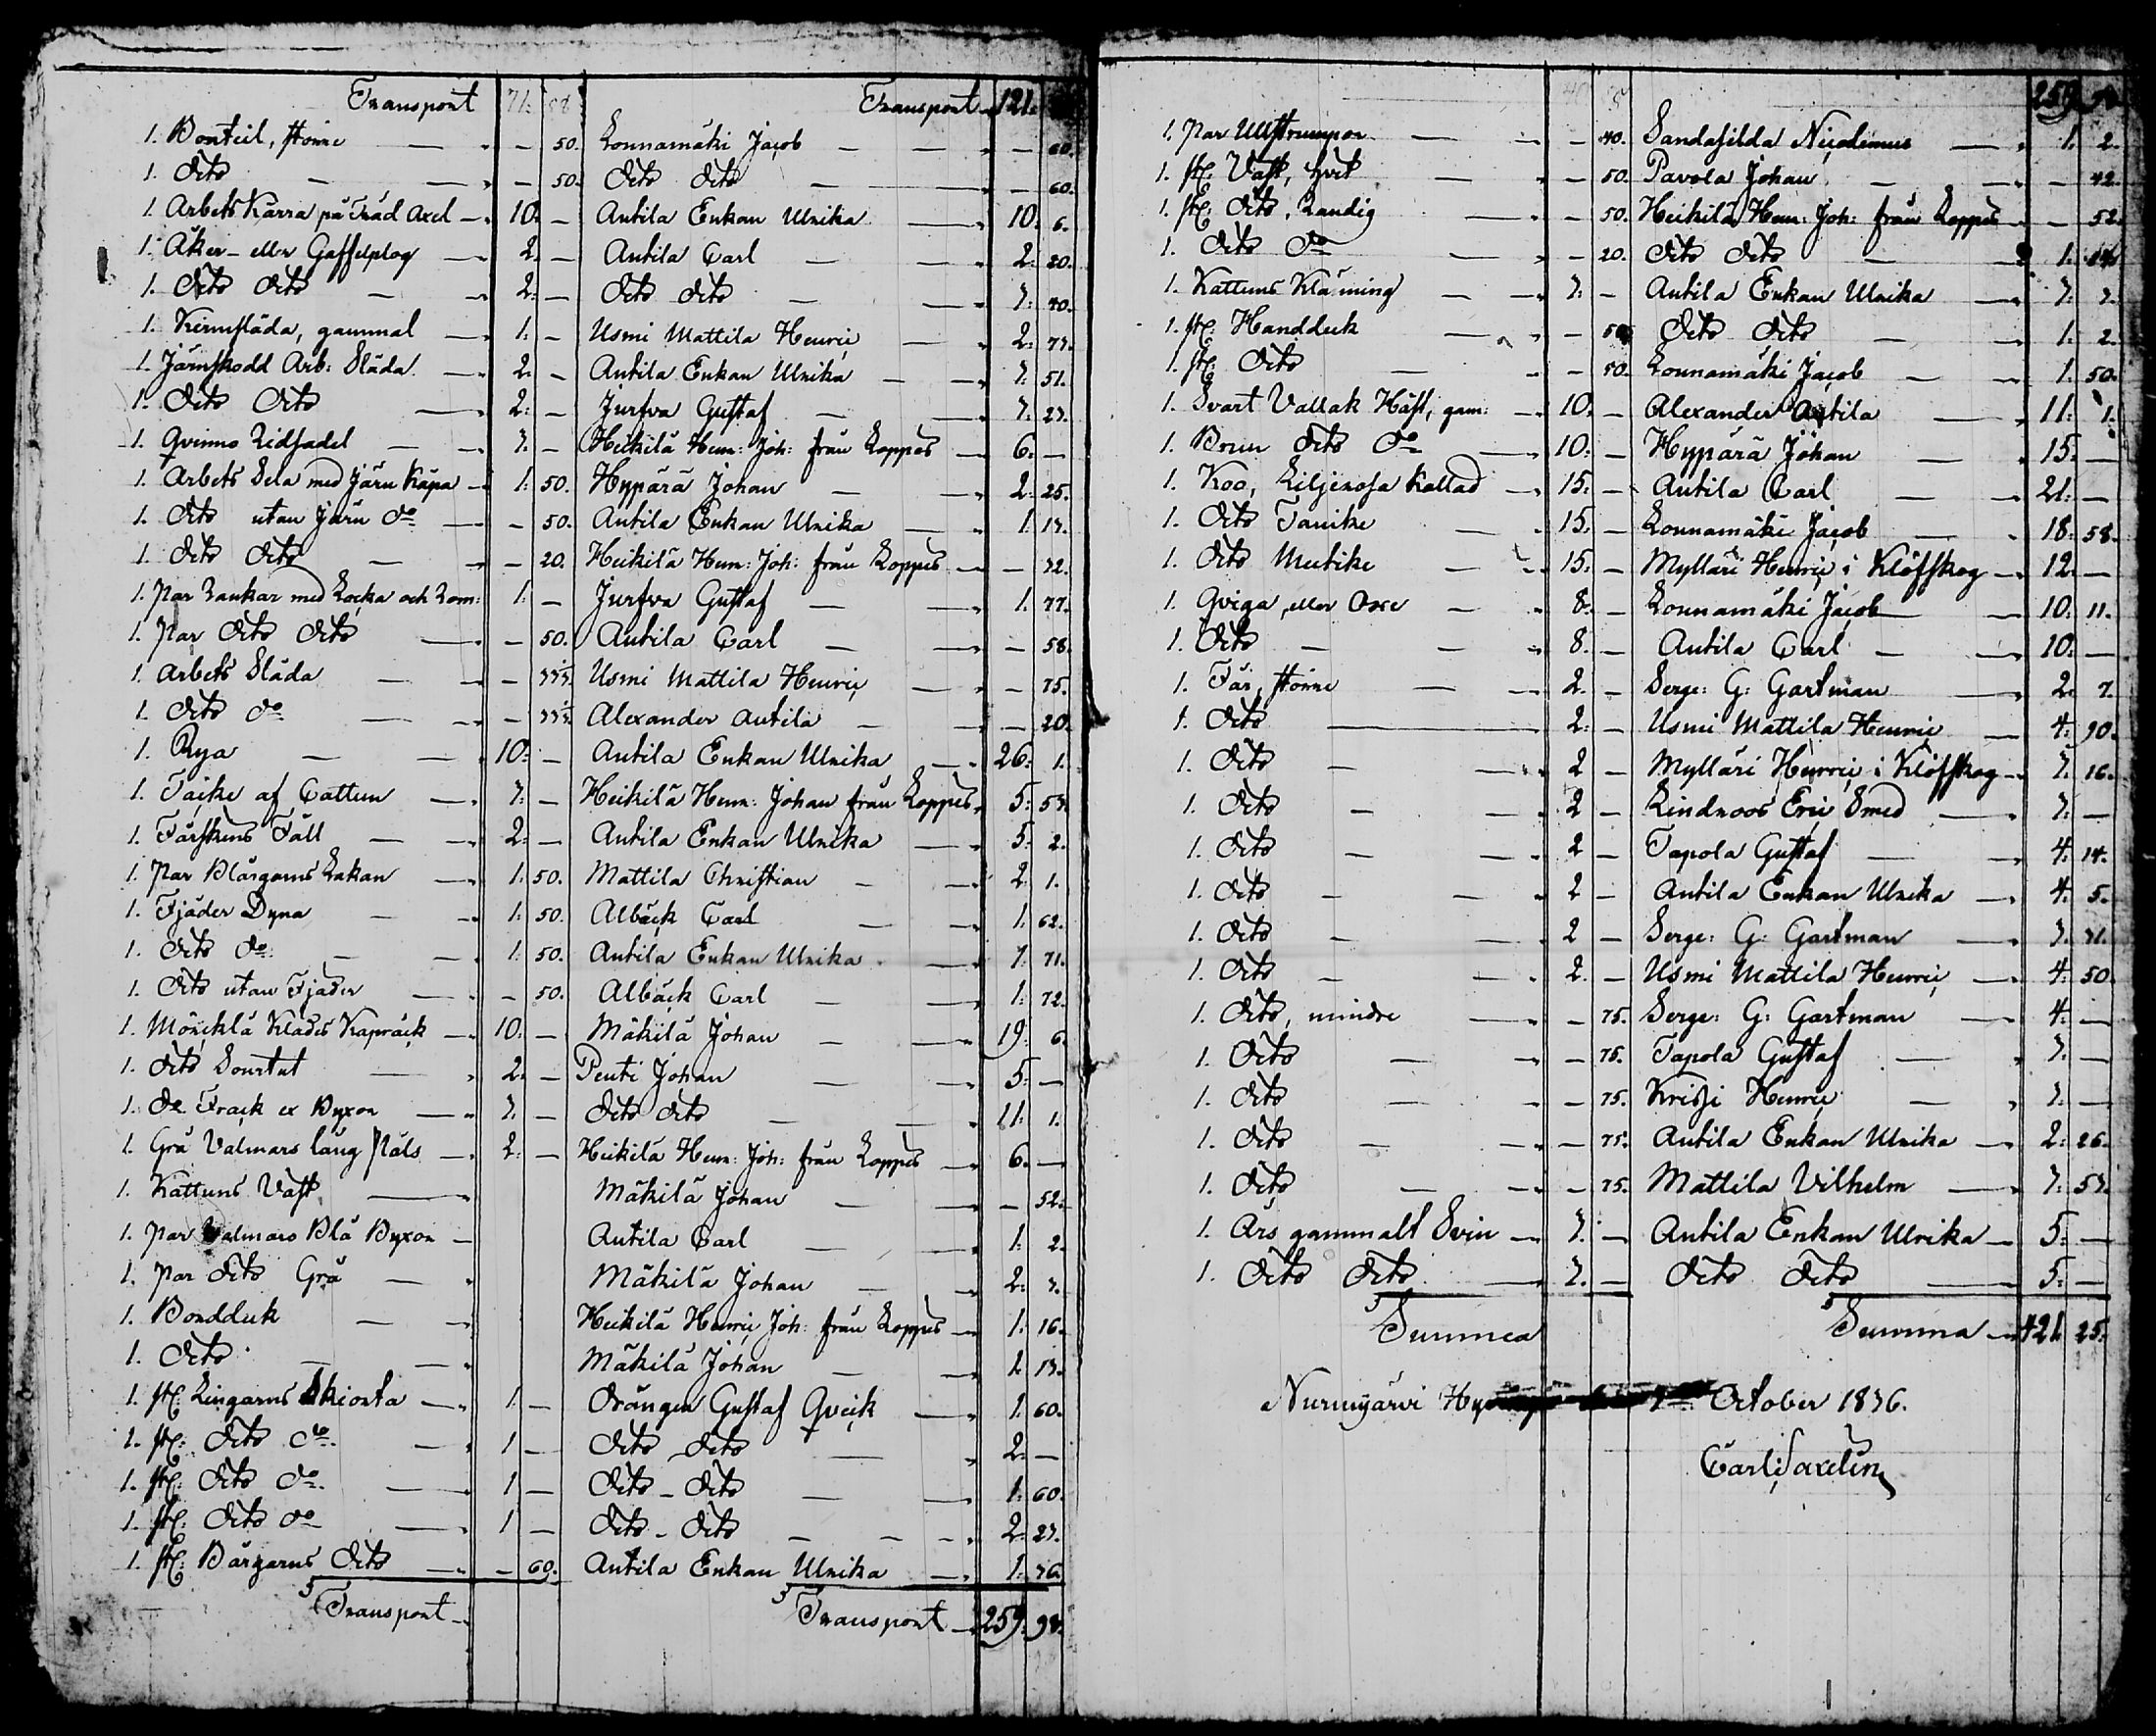 Transport 71: 58. Transport 121:
1. Bonteil, större - 50. Lonnamäki Jacob - 60.
1. Dito - 50. Dito Dito - 60.
1. Arbets Kärra på Träd Axel 10: - Antila Enkan Ulrika 10: 6.
1. Åker- eller Gaffelplog 2: - Antila Carl 2: 20.
1. Dito Dito 2: - Dito Dito 3: 40.
1. Kirmsläda, gammal 1: - Usmi Mattila Henric 2: 73.
1. Järnskodd Arb: Släda 2: - Antila Enkan Ulrika 3: 51.
1. Dito Dito 2: - Jurfva Gustaf 3: 23.
1. Qvinno Ridsadel 3: - Heikilä Hem: Joh: från Loppes 6: -
1. Arbets Sela med Järn Käpa 1: 50. Hypärä Johan 2: 25.
1. Dito utan Järn do - 50. Antila Enkan Ulrika 1: 13.
1. Dito Dito - 20. Heikilä Hem: Joh: från Loppes - 32.
1. Par Rankar med Locka och Rom: 1: - Jurfva Gustaf 1: 77.
1. Par Dito Dito - 50. Antila Carl - 58.
1. Arbets Släda - 33⅓. Usmi Mattila Henric - 75.
1. Dito do - 33⅓. Alexander Antila - 20.
1. Rya 10: - Antila Enkan Ulrika 26: 1.
1. Täcke af Cattun 3: - Heikilä Hem: Johan från Loppes 5: 53.
1. Fårskins Fäll 2: - Antila Enkan Ulrika 5: 2.
1. Par Blårgarns Lakan 1: 50. Mattila Christian 2: 1.
1. Fjäder Dyna 1: 50. Albäck Carl 1: 62.
1. Dito do: 1: 50. Antila Enkan Ulrika 3: 71.
1. Dito utan Fjäder - 50. Albäck Carl 1: 72.
1. Mörcklå Klädes Kapråck 10: - Mäkilä Johan 19: 6.
1. Dito Sourtut 2: - Penti Johan 5: -
1. do Frack ex Byxor 3: - Dito Dito 11: 1.
1. Grå Valmars lång Päls 2: - Heikilä Hem: Joh: från Loppes 6: -
1. Kattuns Väst Mäkilä Johan - 52.
1. Par Valmars Blå Byxor Antila Carl 1: 2.
1. Par Dito Grå Mäkilä Johan 2: 3.
1. Bordduk Heikilä Henric Joh: från Loppes 1: 16.
1. Dito Mäkilä Johan 1: 13.
1. st: Lingarns Skiorta 1: - Drängen Gustaf Qveck 1: 60.
1. st: Dito do. 1 - Dito Dito 2: -
1. st: Dito do. 1 - Dito - Dito 1: 60.
1. st: Dito do 1 - Dito - Dito 2: 23.
1. st: Bårgarns Dito - 60. Antila Enkan Ulrika 1: 36.
Transport Transport 259: 98.
259 98
1. Par Ullstrumpor - 40. Sandasilda Nicodemus 1: 2.
1. st: Väst, hvit - 50. Pavola Johan - 42.
1. st: Dito, Randig - 50. Heikilä Hem: Joh: från Loppes - 52.
1. Dito do - 20. Dito Dito 1:
1. Kattuns Klänning 3: - Antila Enkan Ulrika 3: 3.
1. st: Handduk - 50 Dito Dito 1: 2.
1. st: Dito - 50. Lonnamäki Jacob 1: 50.
1. Svart Vallak Häst, gam: 10: - Alexander Antila 11: 1.
1. Brun Dito do 10: - Hypärä Johan 15: -
1. Koo, Liljerosa Kallad 15: - Antila Carl 21: -
1. Dito Tanike 15: - Lonnamäki Jacob 18: 58.
1. Dito Mutike 15: - Mylläri Henric i Klöfskog 12: -
1. Qviga, eller Oxe 8: - Lonnamäki Jacob 10: 11.
1. Dito 8: - Antila Carl 10: -
1. Får, större 2: - Serge: G: Gartman 2: 7.
1. Dito 2: - Usmi Mattila Henric 4: 90.
1. Dito 2 - Mylläri Henric i Klöfskog 3: 16.
1. Dito 2 - Lindroos Eric Smed 3: -
1. Dito 2 - Tapola Gustaf 4: 14.
1. Dito 2 - Antila Enkan Ulrika 4: 5.
1. Dito 2 - Serge: G: Gartman 3: 31.
1. Dito 2. - Usmi Mattila Henric 4: 50.
1. Dito, mindre - 75. Serge: G: Gartman 4: -
1. Dito - 75. Tapola Gustaf 3: -
1. Dito - 75. Henric 3: -
1. Dito - 75. Antila Enkan Ulrika 2: 26.
1. Dito - 75. Mattila Vilhelm 3: 53.
1. Års gammalt Svin 3: - Antila Enkan Ulrika 5: -
1. Dito Dito 3: - Dito Dito 5: -
Summa Summa 421 25.
Nurmijärvi October 1836.
Carl Saxelin